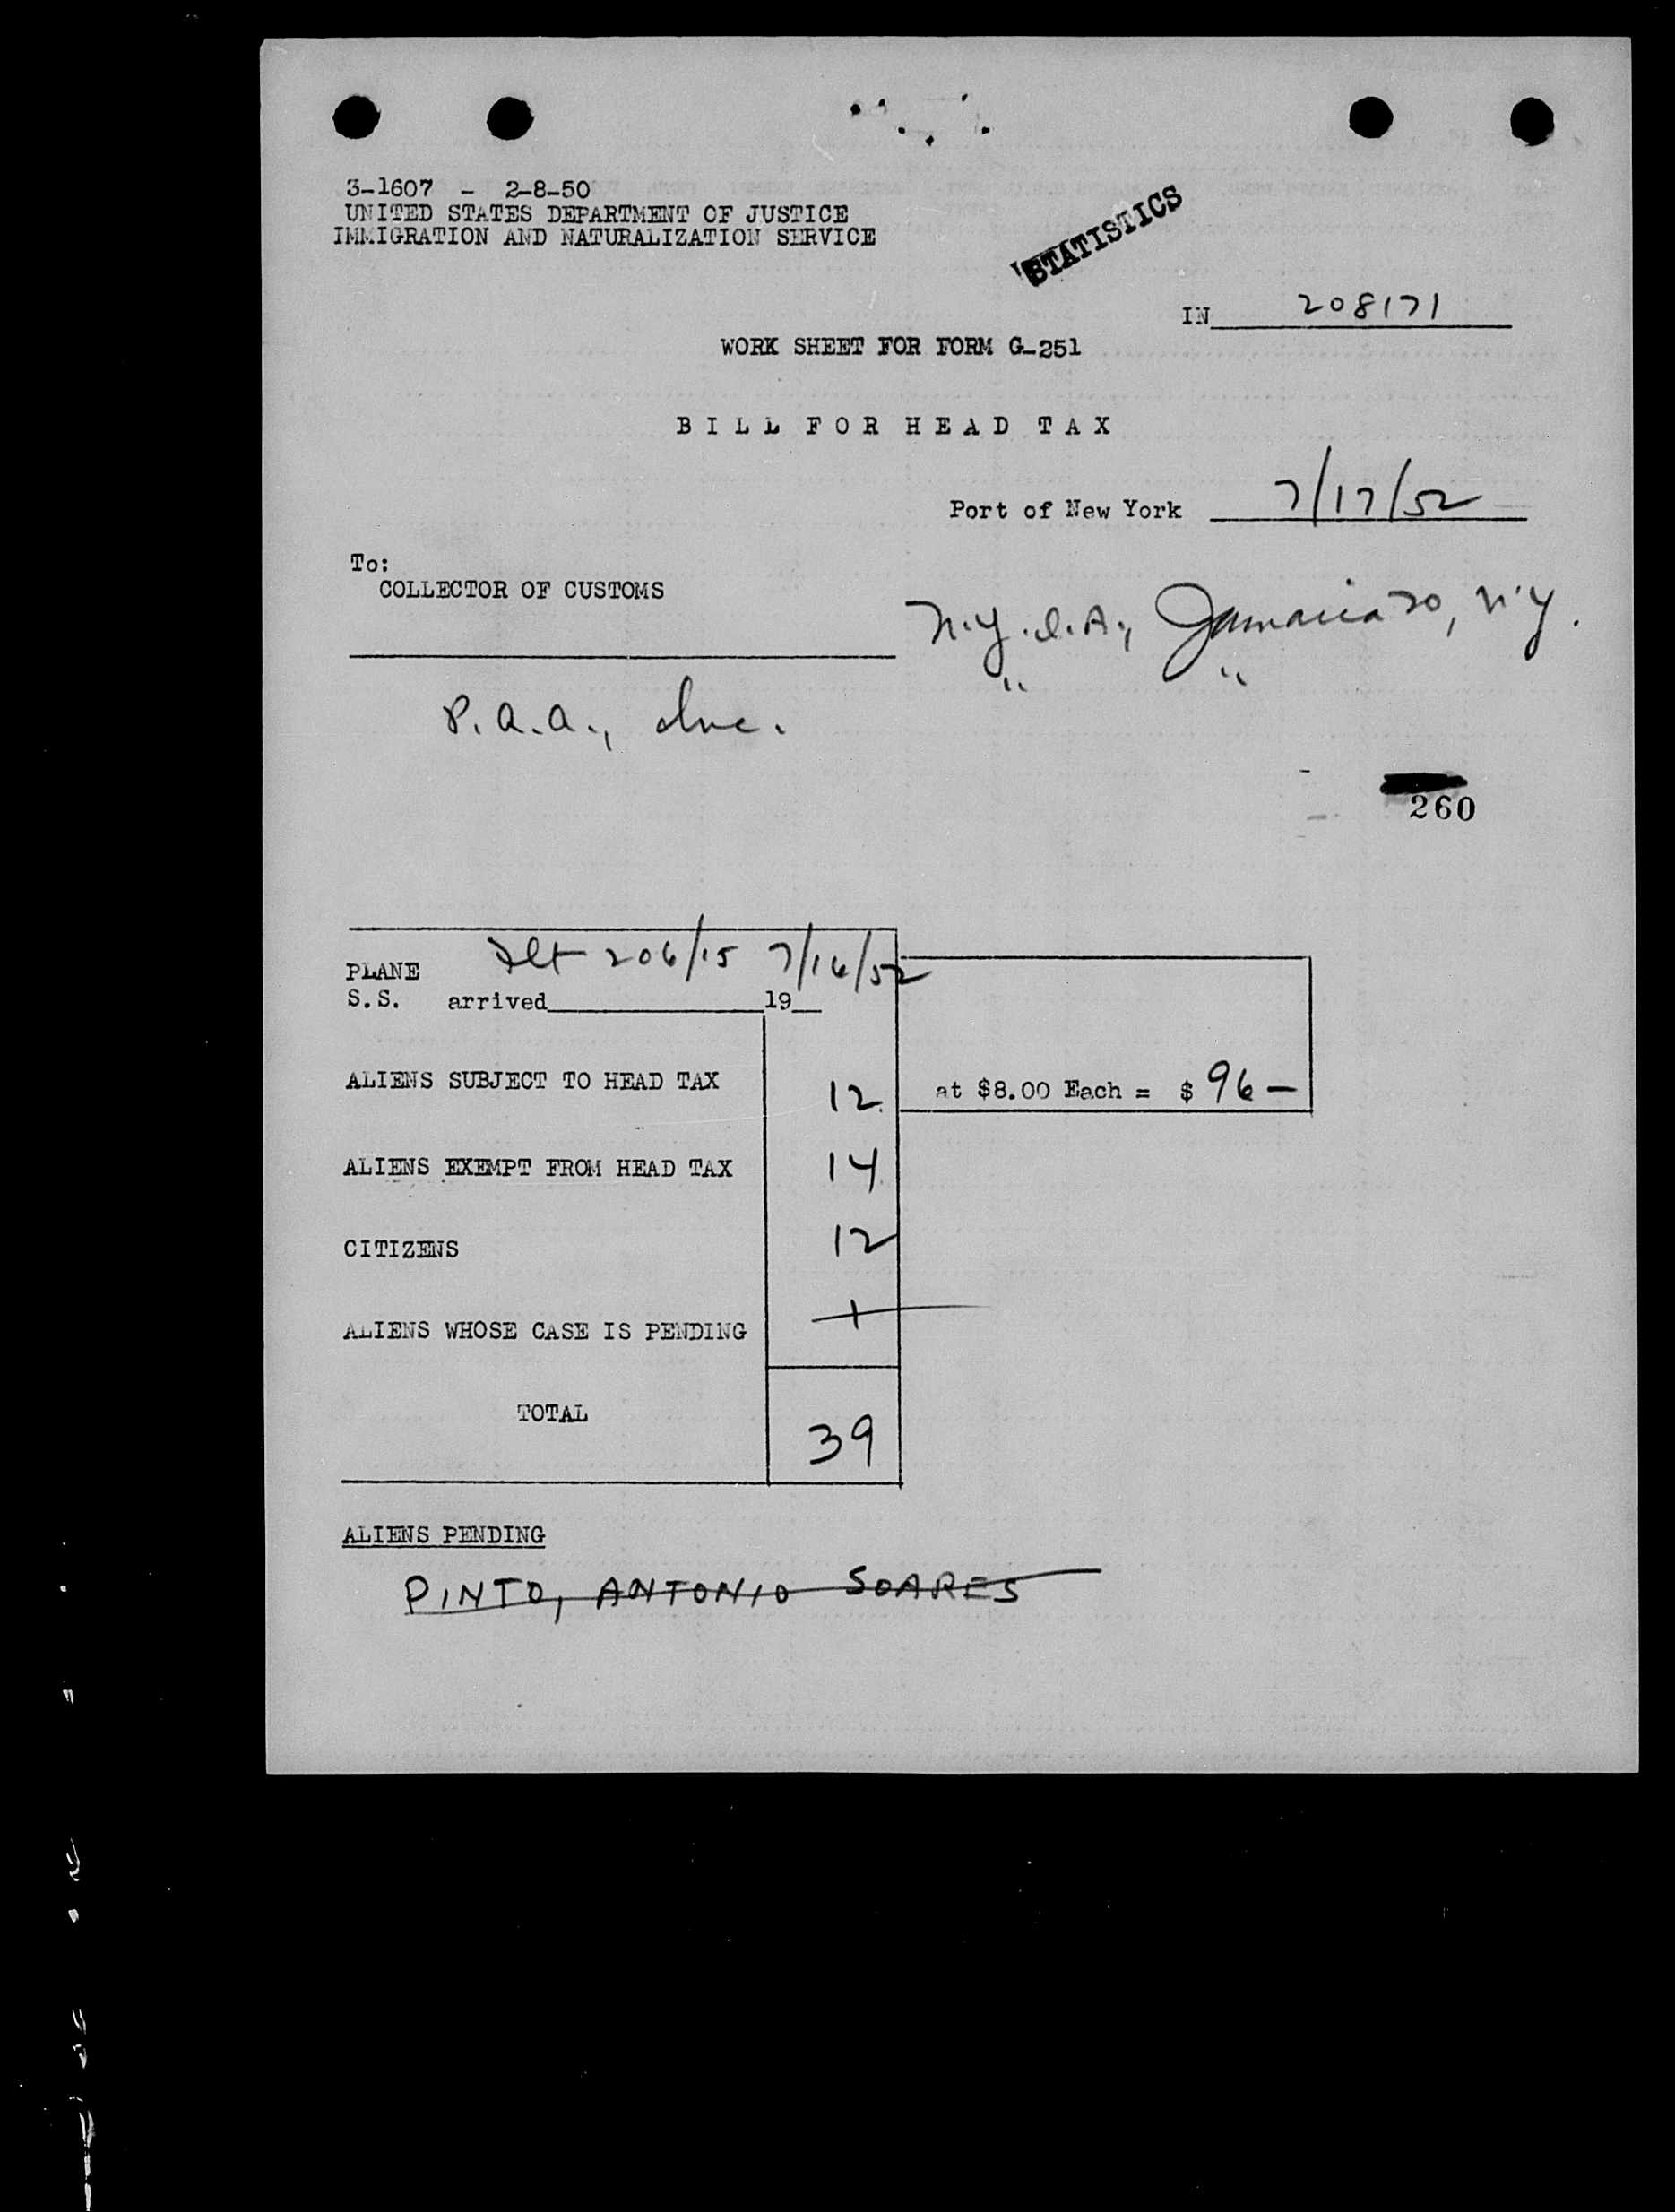 3-1607 - 2-8-50
UNITED STATES DEPARTMENT OF JUSTICE
IMMIGRATION AND NATURALIZATION SERVICE
STATISTICS
IN 208171
WORK SHEET FOR FORM G-251
BILL FOR HEAD TAX
Port of New York 7/17/52
To:
COLLECTOR OF CUSTOMS
N.Y.I.A., Jamaica 30, N.Y.
" "
P.A.A., Inc.
260
Flt 206/15 7/16/52
PLANE
S.S. arrived 19
ALIENS SUBJECT TO HEAD TAX 12 at $8.00 Each = $ 96—
ALIENS EXEMPT FROM HEAD TAX 14
CITIZENS 12
ALIENS WHOSE CASE IS PENDING 1
TOTAL 39
ALIENS PENDING
PINTO, ANTONIO SOARES